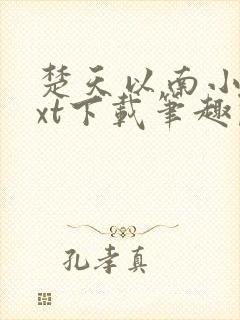 楚天以南小
xt下载笔趣
孔孝真